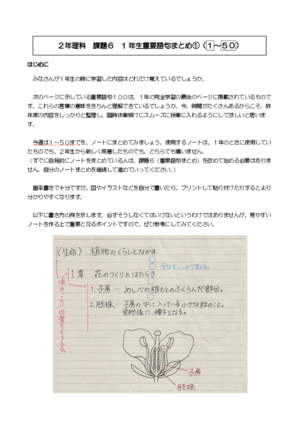 ２年理科　課題６　１年生重要語句まとめ①（１～５０）
はじめに
みなさんが１年生の時に学習した内容はどれだけ覚えているでしょうか。
次のページに示している重要語句１００は、１年の完全学習の最後のページに掲載されているものです。これらの言葉の意味をきちんと理解できているでしょうか。今、時間がたくさんあるからこそ、昨年度の内容をしっかりと整理し、臨時休業明けにスムーズに授業に入れるようにしてほしいと思います。
今週は１～５０までを、ノートにまとめてみましょう。使用するノートは、１年のときに使用していたものでも、２年生から新しく用意したものでも、どちらでも構いません。
（すでに自発的にノートをまとめている人は、課題６（重要語句まとめ）を改めて始める必要はありません。自分のノートまとめを継続して進めていってください。）
箇条書きで十分ですが、図やイラストなどを自分で書いたり、プリントして貼り付けたりするとより分かりやすくなります。
以下に書き方の例を示します。必ずそうしなくてはいけないというわけではありませんが、見やすいノートを作る上で重要となるポイントですので、ぜひ参考にしてみてください。
(生命) 植物のくらしとなかま
1章 花のつくりとはたらき
1. 子房 … めしべの根もとのふくらんだ部分。
2. 胚珠 … 子房の中に入っている小さな粒のこと。
受粉後に、種子となる。
子房
胚珠